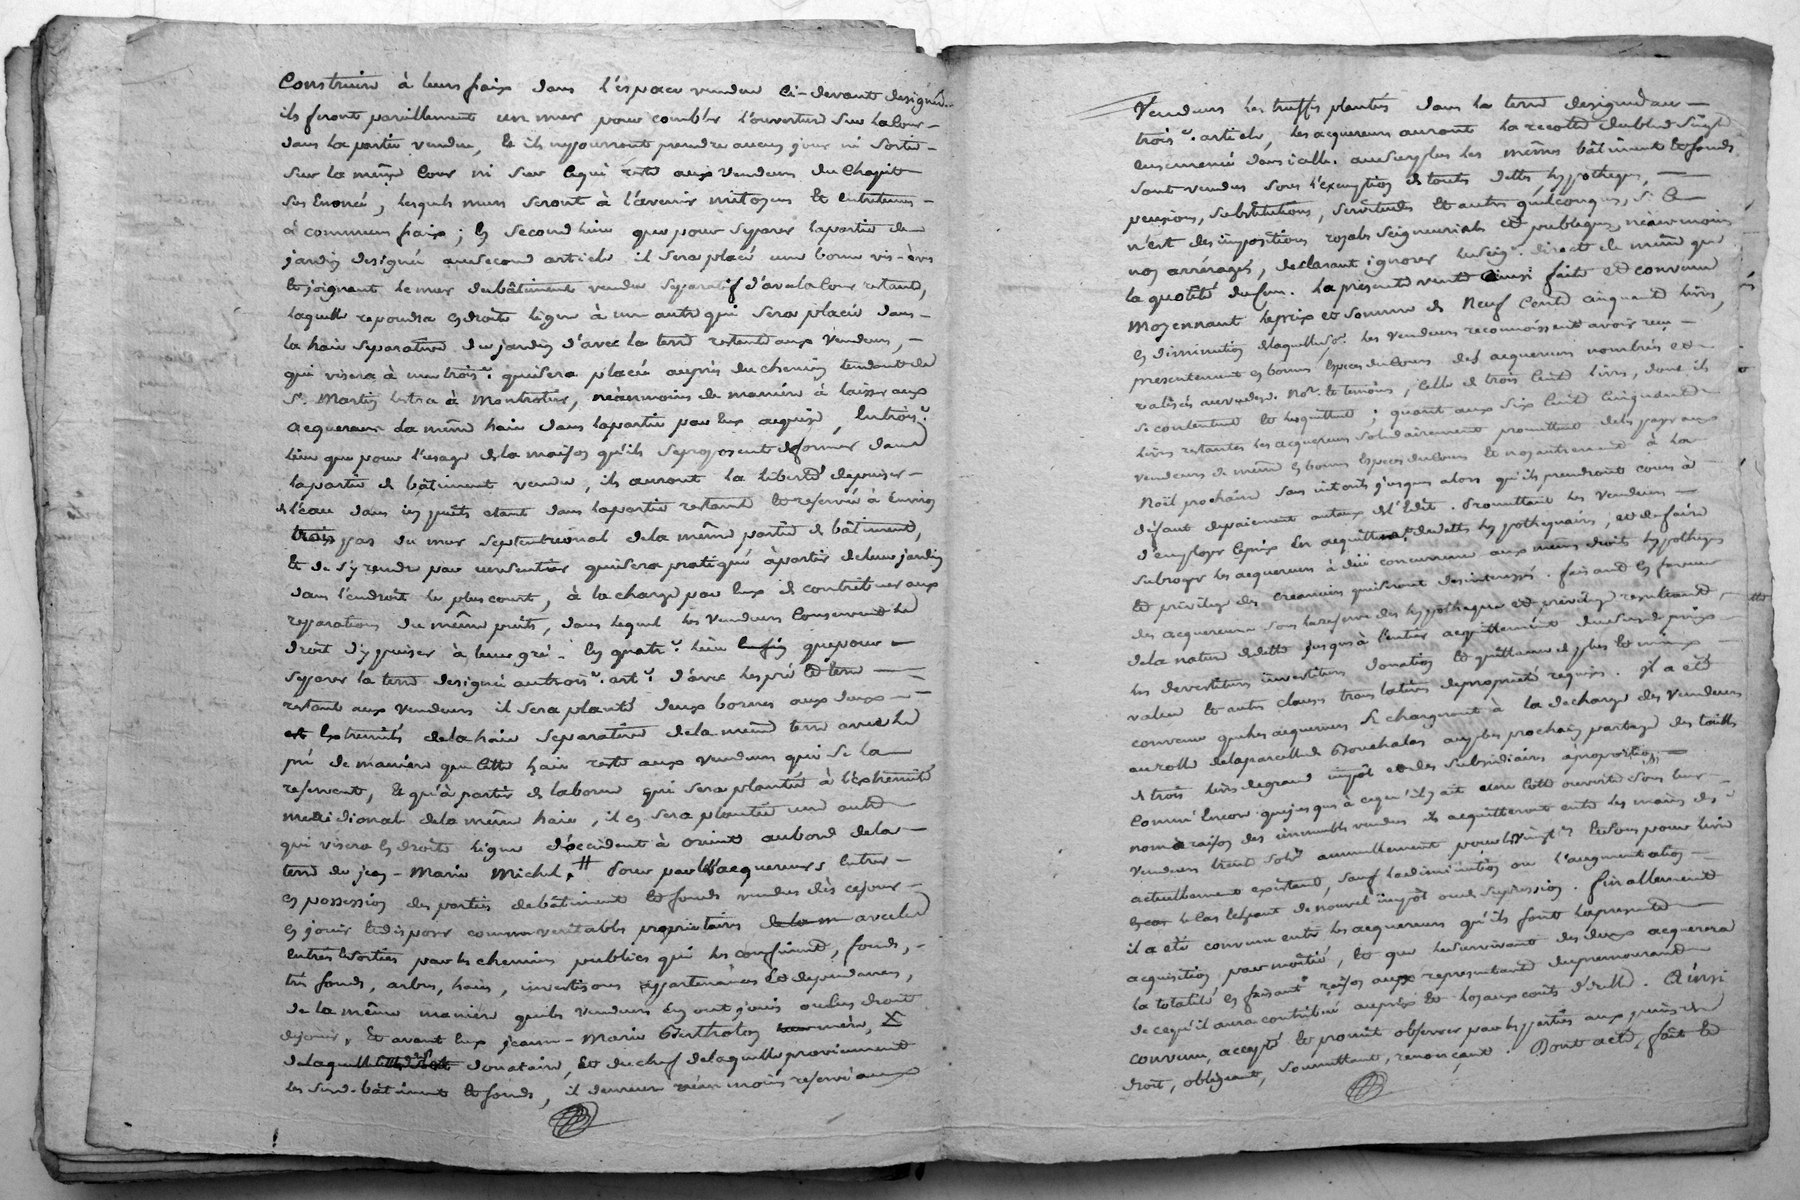 Construire à leurs faix dans l'espace vendu ci-devant designé
ils feront pareillement un mur pour combler l'ouverture sur la Cour
dans la partie vendue, et ils ny pourront prendre aucun jour ni sortie
sur la même Cour ni sur ce qui reste aux vendeurs du Chapit
sus Enoncé, lesquels murs seront à l'avenir mitoyens et entretenus
à communs faix ; En second lieu que pour separer la partie de
jardin designée au second article il sera placé une borne vis-àvis
et joignant le mur du bâtiment vendu separatif d'avec la Cour restante,
laquelle repondra en droite ligne à une autre qui sera placée dans
la haie separative du jardin d'avec la terre restante aux vendeurs,
qui visera à une trois.e qui sera placée auprès du chemin tendant de
St. Martin à Montrotier, néanmoins de maniere à laisser aux
acquereurs la même haie dans la partie par eux acquise, En trois.e
lieu que pour l'usage de la maison qu'ils se proposent de former dans
la partie de bâtiment vendue, ils auront la liberté de puiser
de l'eau dans un puits etant dans la partie restante et reservée à Environ
trois pas du mur septentrional de la même partie de bâtiment,
Et de s'y rendre par un sentier qui sera pratiqué à partir de leur jardin
dans l'endroit le plus court, à la charge par Eux de contribuer aux
reparations du même puits, dans lequel les vendeurs conservent le
droit d'y puiser à leur gré. En quatr.e lieu que pour
separer la terre designée au trois.e art.e d'avec les pré et terre
restant aux vendeurs il sera planté deux bornes aux deux
Extremités de la haie separative de la même terre avec le
pré de maniere que cette haie reste aux vendeurs qui se la
reservent, Et qu'à partir de la borne qui sera plantée à l'Extremité
meridional de la même haie, il en sera plantée une autre
qui visera en droite ligne d'occident à orient au bord de la
terre de jean-Marie Michel, # Pour par les acquereurs entrer
en possession des parties de bâtiment et fonds vendus dès ce jour
en jouir et disposer comme veritables proprietaires
entrées et sorties par les chemins publics qui les confinent, fonds,
très fonds, arbres, haies, investisons appartenances et dependances,
de la même maniere que les vendeurs En ont joui ou dû droit
de jouir, Et avant Eux jeanne-Marie Berthelon mere, X
de laquelle donataire, Et du chef de laquelle proviennent
les susd. bâtiment et fonds, il demeure néanmoins reservé aux
Vendeurs les truffes plantées dans la terre designée au
trois.e article, les acquereurs auront la recolte du bled seigle
ensemencé dans icelle. au surplus les mêmes bâtiment et fonds
sont vendus sous l'exemption de toutes dettes hypotheques,
pensions, substitutions, servitudes et autres quelconques, si Ce
n'est des impositions royales seigneuriales et publiques néanmoins
nos arrérages, declarant ignorer le seig.r direct de même que
la quotité du sens. la presente vente ainsi faite et convenue
Moyennant le prix et somme de Neuf Cent cinquante livres,
En diminution de laquelle les vendeurs reconnoissent avoir reçu
presentement en bonnes Especes du Cours des acquereurs nombrées et
réalisées au vu de Nore. et temoins, Celle de trois Cent livres, dont ils
se contentent et les quittent ; quant aux six Cent Cinquante
livres restantes les acquereurs solidairement promettent de les payer aux
vendeurs de même en bonnes Especes du Cours et non autrement à la
Noël prochaine sans intérêts jusques alors qu'ils prendront cours à
défaut de paiement au taux de l'Edit. Promettant les vendeurs
d'employer le prix En acquittem.t de dettes hypothequaires, et de faire
subroger les acquereurs à due concurrence aux mêmes droits hypotheques
Et privilege des creanciers qui seront desinteressés. faisant En faveur
des acquereurs sous la reserve des hypotheque et privilege resultant
de la nature de dette jusqu'à l'entier acquittement du susd. prix
les devestitures investitures donation et quittance de plus et mieux
value Et autres clauses translatives de proprieté requises. il a eté
convenu que les acquereurs se chargeront à la decharge des vendeurs
au rolle de la parcelle de Bouchalas au plus prochain partage des tailles
de trois livres de grand impôt et des subsidiaires à proportion
Comm'Encore que jusques à ce qu'il y ait une Cotte ouverte sous leur
nom à raison des immeubles vendus ils acquitteront entre les mains des
vendeurs trente sols annuellement pour les Vingt.s Et sous pour livre
actuellement existant, sauf la diminution ou l'augmentation
En cas de nouvel impôt ou de supression. finallement
il a eté convenu entre les acquereurs qu'ils font la presente
acquisition par moitié, Et que le survivant des deux acquerera
la totalité en faisant raison aux representant du premourant
de ce qu'il aura contribué au prix Et loyaux coûts d'icelle. Ainsi
convenu, accepté Et promit observer par les parties aux peines de
droit, obligeant, soumettant, renonçant. Dont acte, fait Et